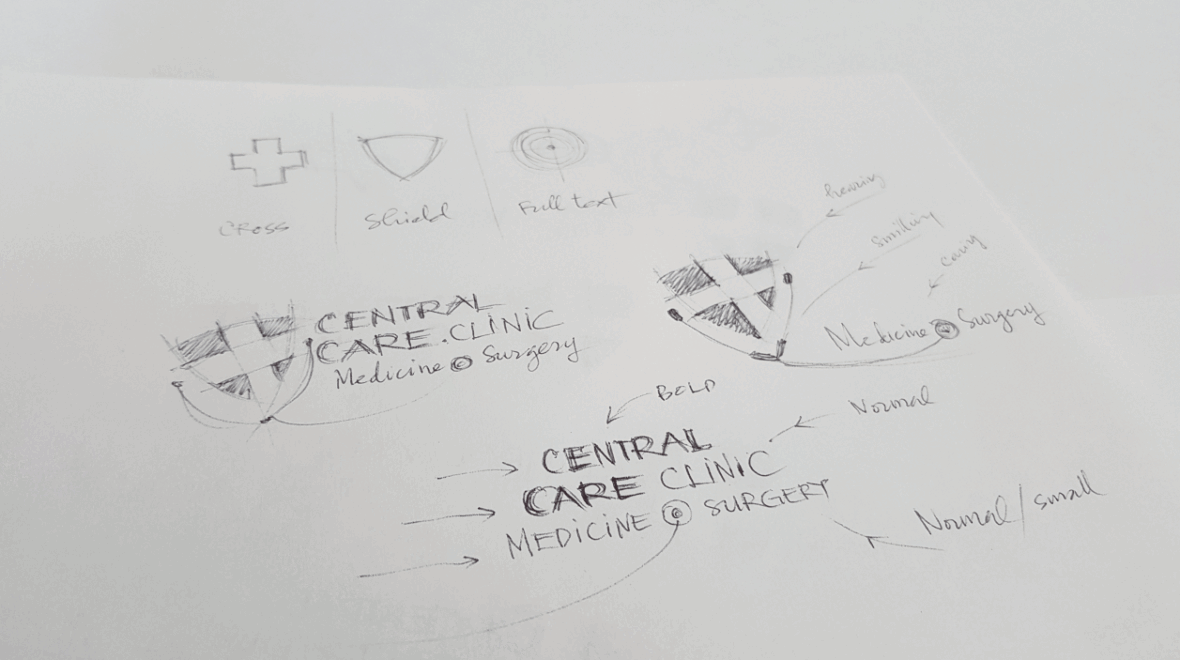 Cross
Shield
Full text
hearing
smilling
CENTRAL
CARE.CLINIC
Medicine © Surgery
Medicine Surgery
BOLD
Normal
CENTRAL
CARE CLINIC
MEDICINE © SURGERY
Normal/small